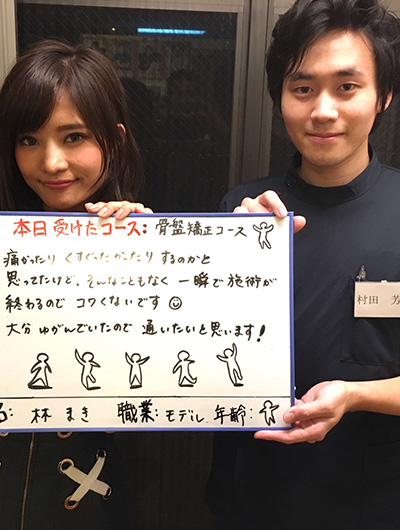 本日受けたコース: 骨盤矯正コース
痛かったり くすぐったかったり するのかと
思ってたけど、そんなこともなく 一瞬で施術が
終わるので コワくないです
大分 ゆがんでいたので 通いたいと思います!
林 まき 職業: モデル 年齢:
村田 芳